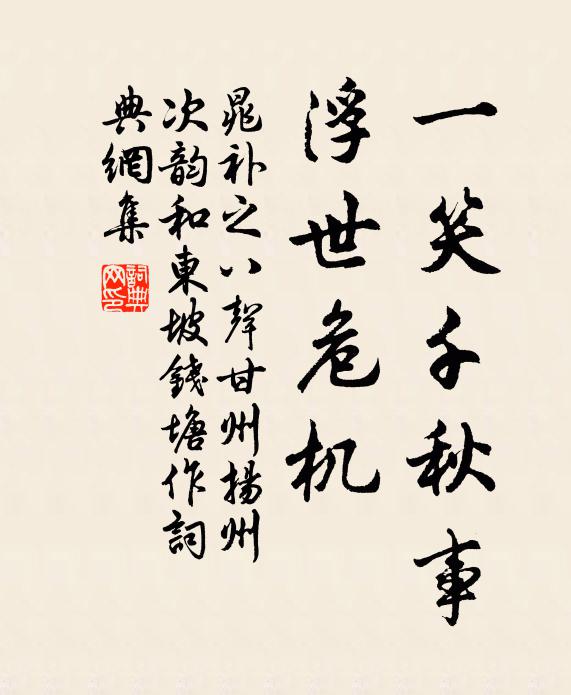 一笑千秋事
浮世危机
晁补之八聲甘州揚州
次韵和東坡錢塘作詞
典網集
詞典网印